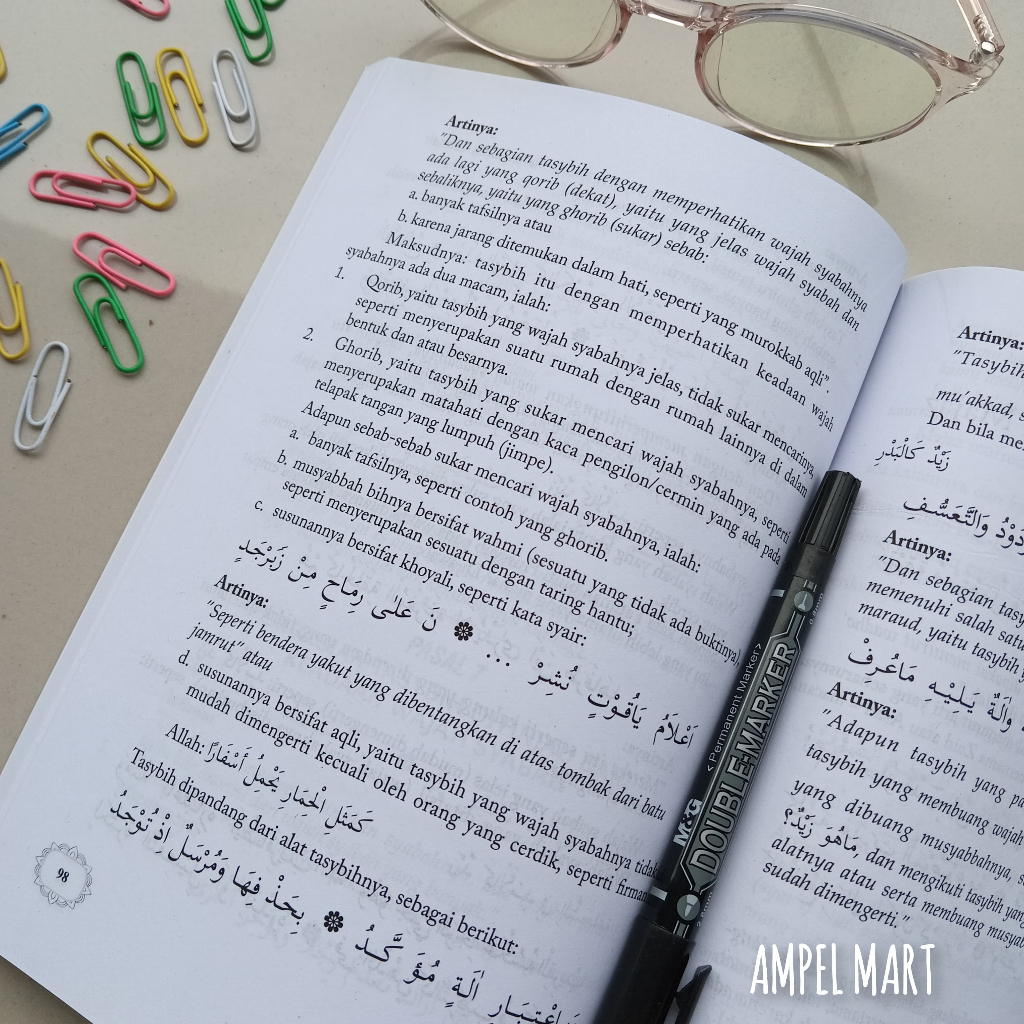 Artinya:
"Dan sebagian tasybih dengan memperhatikan wajah syabahnya
ada lagi yang qorib (dekat), yaitu yang jelas wajah syabah dan
sebaliknya, yaitu yang ghorib (sukar) sebab:
a. banyak tafsilnya atau
b. karena jarang ditemukan dalam hati, seperti yang murokkab aqli".
Maksudnya: tasybih itu dengan memperhatikan keadaan wajah
syabahnya ada dua macam, ialah:
1. Qorib, yaitu tasybih yang wajah syabahnya jelas, tidak sukar mencarinya,
seperti menyerupakan suatu rumah dengan rumah lainnya di dalam
bentuk dan atau besarnya.
2. Ghorib, yaitu tasybih yang sukar mencari wajah syabahnya, seperti
menyerupakan matahati dengan kaca pengilon/cermin yang ada pada
telapak tangan yang lumpuh (jimpe).
Adapun sebab-sebab sukar mencari wajah syabahnya, ialah:
a. banyak tafsilnya, seperti contoh yang ghorib.
b. musyabbah bihnya bersifat wahmi (sesuatu yang tidak ada buktinya),
seperti menyerupakan sesuatu dengan taring hantu;
c. susunannya bersifat khoyali, seperti kata syair:
اَعْلَامُ يَاقُوْتٍ نُشِرْ ... نَ عَلٰى رِمَاحٍ مِنْ زَبَرْجَدٍ
Artinya:
"Seperti bendera yakut yang dibentangkan di atas tombak dari batu
jamrut" atau
d. susunannya bersifat aqli, yaitu tasybih yang wajah syabahnya tidak
mudah dimengerti kecuali oleh orang yang cerdik, seperti firman
Allah: كَمَثَلِ الْحِمَارِ يَحْمِلُ أَسْفَارًا
Tasybih dipandang dari alat tasybihnya, sebagai berikut:
اٰلَةٍ مُؤَكَّدُ بِحَذْفِهَا وَمُرْسَلٌ اِذْ تُوْجَدُ
98
Artinya:
"Tasybih
mu'akkad, s
Dan bila me
زَيْدٌ كَالْبَدْرِ
وَالتَّعَسُّفِ
Artinya:
"Dan sebagian tasy
memenuhi salah satu
maraud, yaitu tasybih
يَلِيْهِ مَاعُرِفْ
Artinya:
"Adapun tasybih yang pa
tasybih yang membuang wajah
yang dibuang musyabbahnya, s
مَاهُوَ زَيْدٌ؟, dan mengikuti tasybih yang
alatnya atau serta membuang musyab
sudah dimengerti."
< Permanent Marker >
M&G DOUBLE-MARKER
AMPEL MART